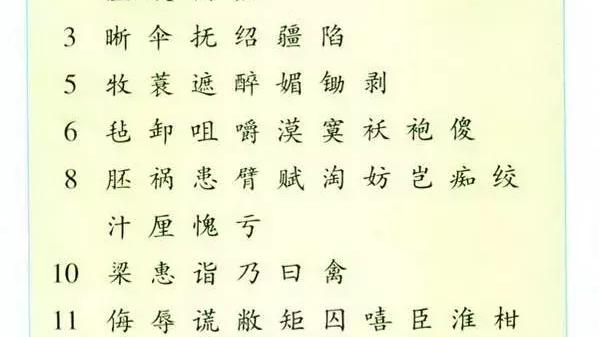 3 晰 伞 抚 绍 疆 陷
5 牧 蓑 遮 醉 媚 锄 剥
6 毡 卸 咀 嚼 漠 寞 袄 袍 傻
8 胚 祸 患 臂 赋 淘 妨 岂 痴 绞
汁 厘 愧 亏
10 梁 惠 诣 乃 曰 禽
11 侮 辱 谎 敝 矩 囚 嘻 臣 淮 柑